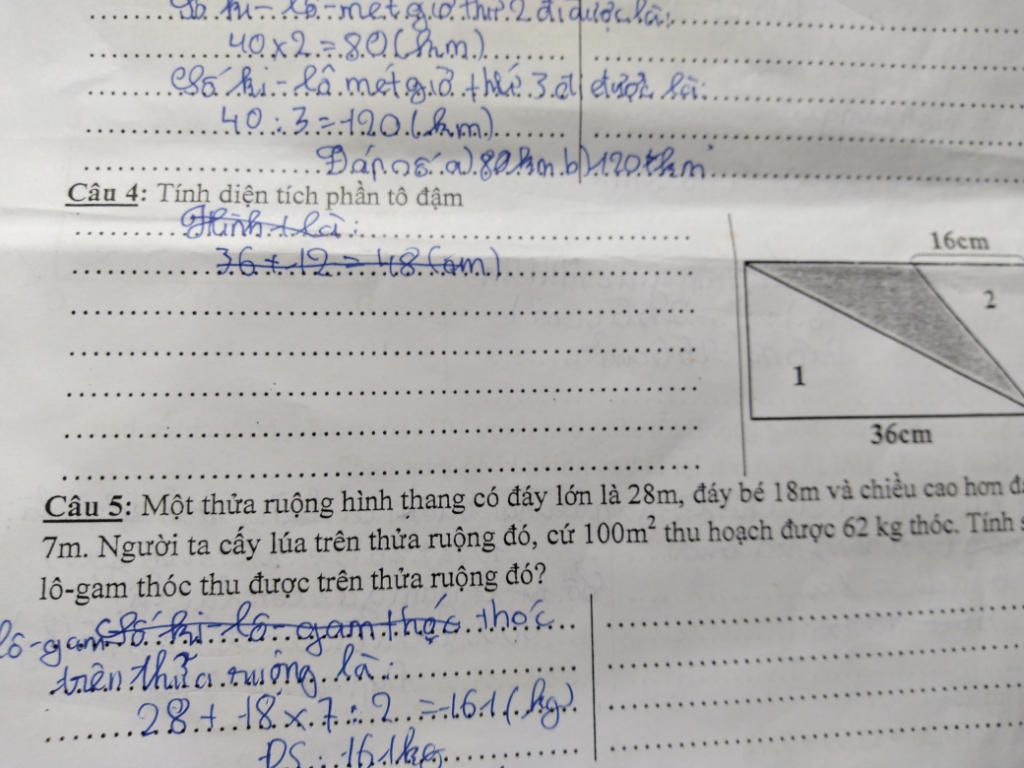 Số ki-lô-mét giờ thứ 2 đi được là:
40 x 2 = 80 (km)
Số ki-lô mét giờ thứ 3 đi được là:
40 : 3 = 120 (km)
Đáp số a) 80 km b) 120 km
Câu 4: Tính diện tích phần tô đậm
Hình 1 là:
36 + 12 = 48 (cm)
16cm
2
1
36cm
Câu 5: Một thửa ruộng hình thang có đáy lớn là 28m, đáy bé 18m và chiều cao hơn
7m. Người ta cấy lúa trên thửa ruộng đó, cứ 100m² thu hoạch được 62 kg thóc. Tính
lô-gam thóc thu được trên thửa ruộng đó?
lô-gam Số ki-lô-gam thóc thóc
trên thửa ruộng là:
28 + 18 x 7 : 2 = 161 (kg)
ĐS: 161kg